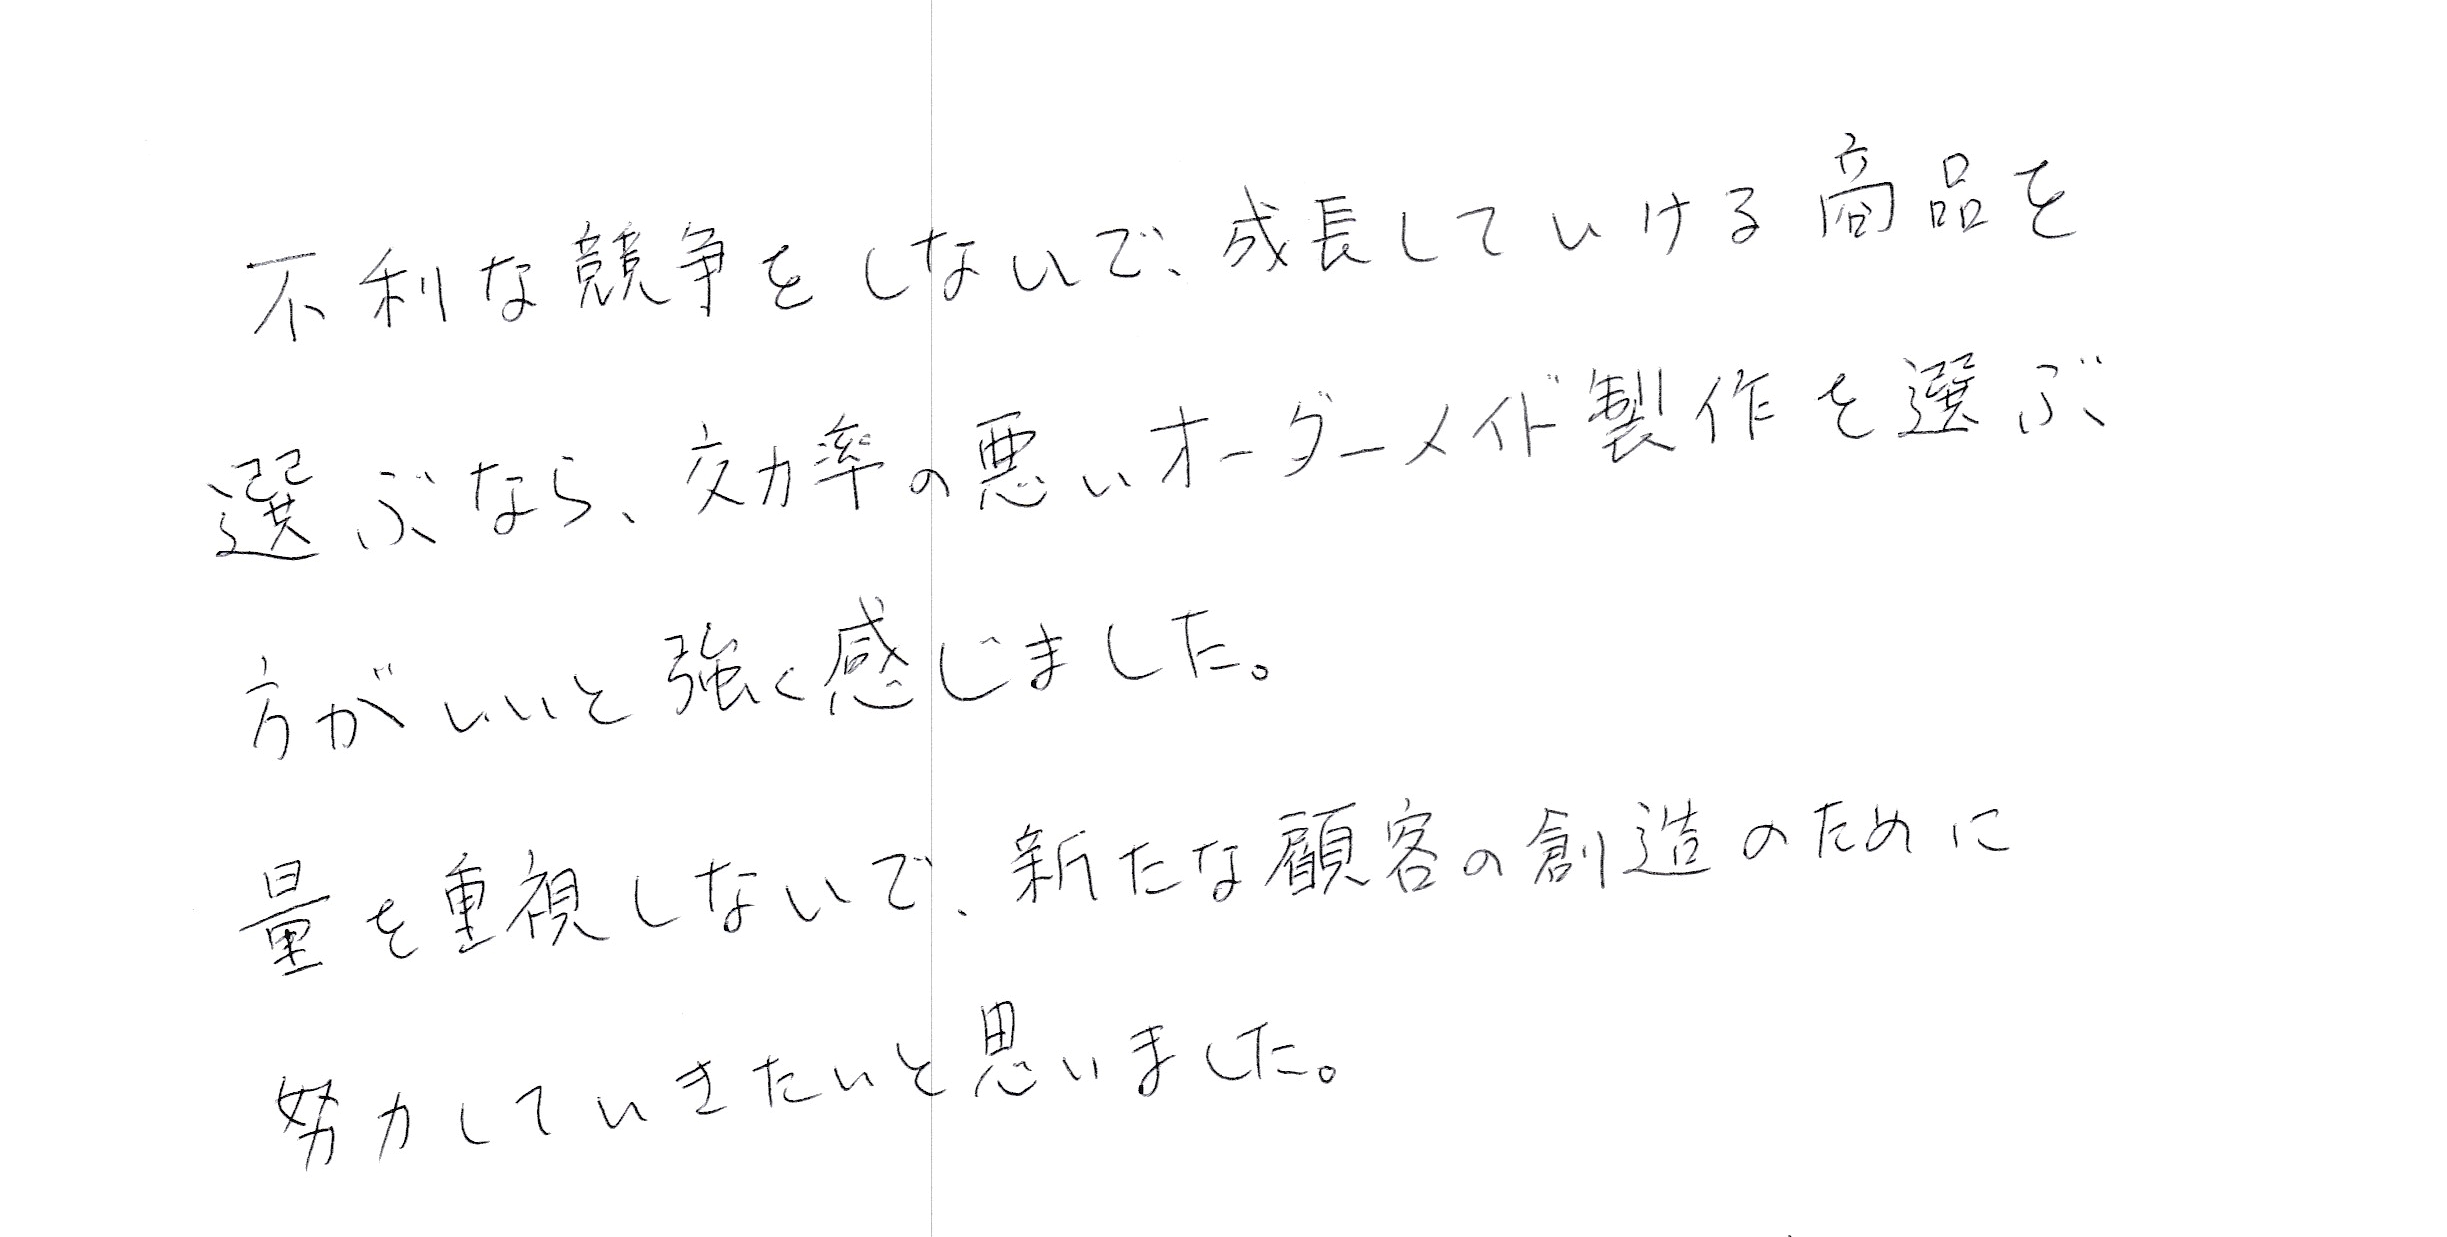 不利な競争をしないで、成長していける商品を
選ぶなら、効率の悪いオーダーメイド製作を選ぶ
方がいいと強く感じました。
量を重視しないで、新たな顧客の創造のために
努力していきたいと思いました。